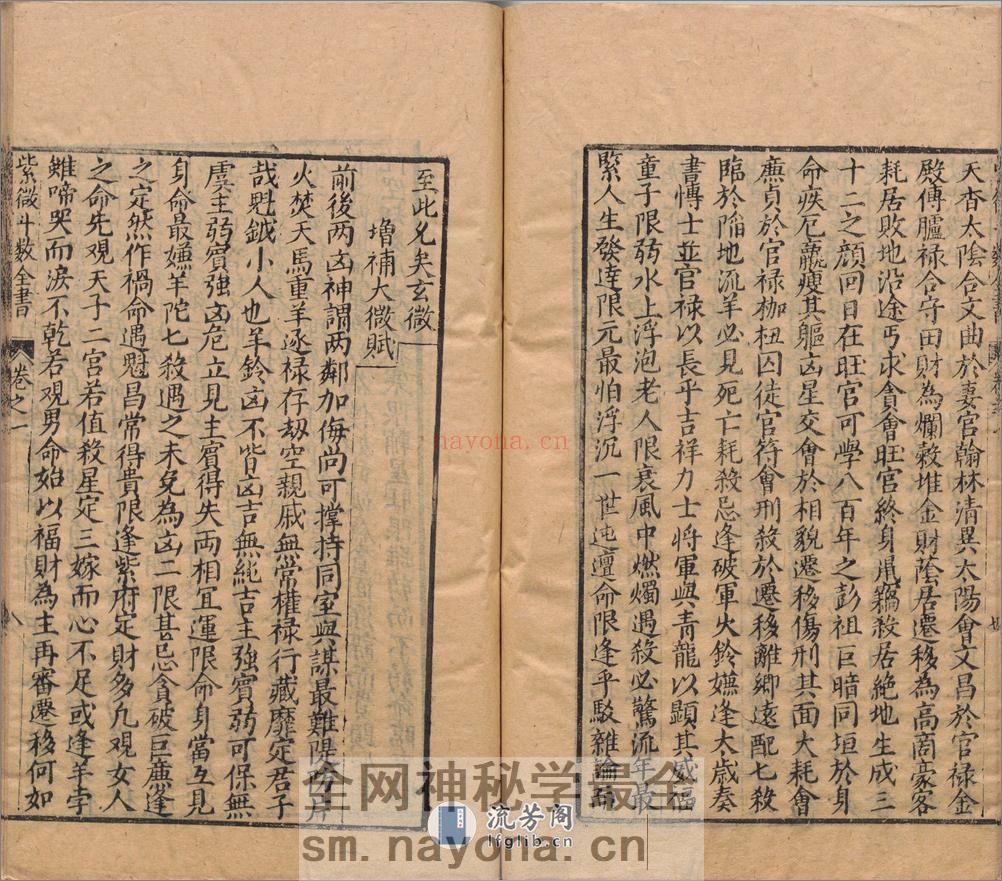 天杳太陰合文曲於妻宮翰林清異太陽會文昌於官禄金
殿傳臚禄合守田財為爛穀堆金財陰居遷移為高商豪客
耗居敗地沿途丐求貪會旺宮終身鼠竊殺居絶地生成三
十二之顔回日在旺宮可學八百年之彭祖巨暗同垣於身
命疾厄羸瘦其軀凶星交會於相貌遷移傷刑其面大耗會
廉貞於官禄枷杻囚徒官符會刑殺於遷移離鄉遠配七殺
臨於陷地流羊必見死亡耗殺忌逢破軍火鈴嫌逢太歲奏
書博士並官禄以長乎吉祥力士將軍與青龍以顯其威福
童子限弱水上浮泡老人限衰風中燃燭遇殺必驚流年最
緊人生發達限元最怕浮沉一世迍邅命限逢乎駁雜論而
至此允矣玄微
增補太微賦
前後两凶神謂两鄰加侮尚可撑持同室與謀最難陽防片
火焚天馬重羊逐禄存劫空親戚無常權禄行藏靡定君子
哉魁鉞小人也羊鈴凶不皆凶吉無純吉主強賓弱可保無
虞主弱賓強凶危立見主賓得失两相冝運限命身當互見
身命最嫌羊陀七殺遇之未免為凶二限甚忌貪破巨廉逢
之定然作禍命遇魁昌常得貴限逢紫府定財多凡觀女人
之命先觀天子二宮若值殺星定三嫁而心不足或逢羊孛
雖啼哭而淚不乾若觀男命始以福財為主再審遷移何如
紫微斗数全書
卷之一
nayona.cn
全网神秘学最全
流芳阁
lfglib.cn
sm.nayona.cn